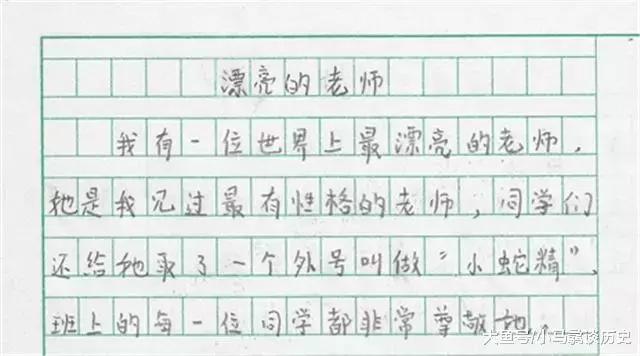 漂亮的老师
我有一位世界上最漂亮的老师,
她是我见过最有性格的老师,同学们
还给她取了一个外号叫做“小蛇精”、
班上的每一位同学都非常尊敬她,
大鱼号/小马哥谈历史